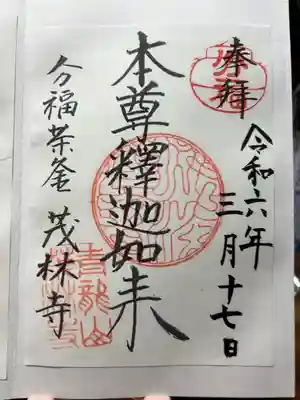 奉拝
令和六年
三月十七日
本尊釋迦如来
分福茶釜 茂林寺
青龍山